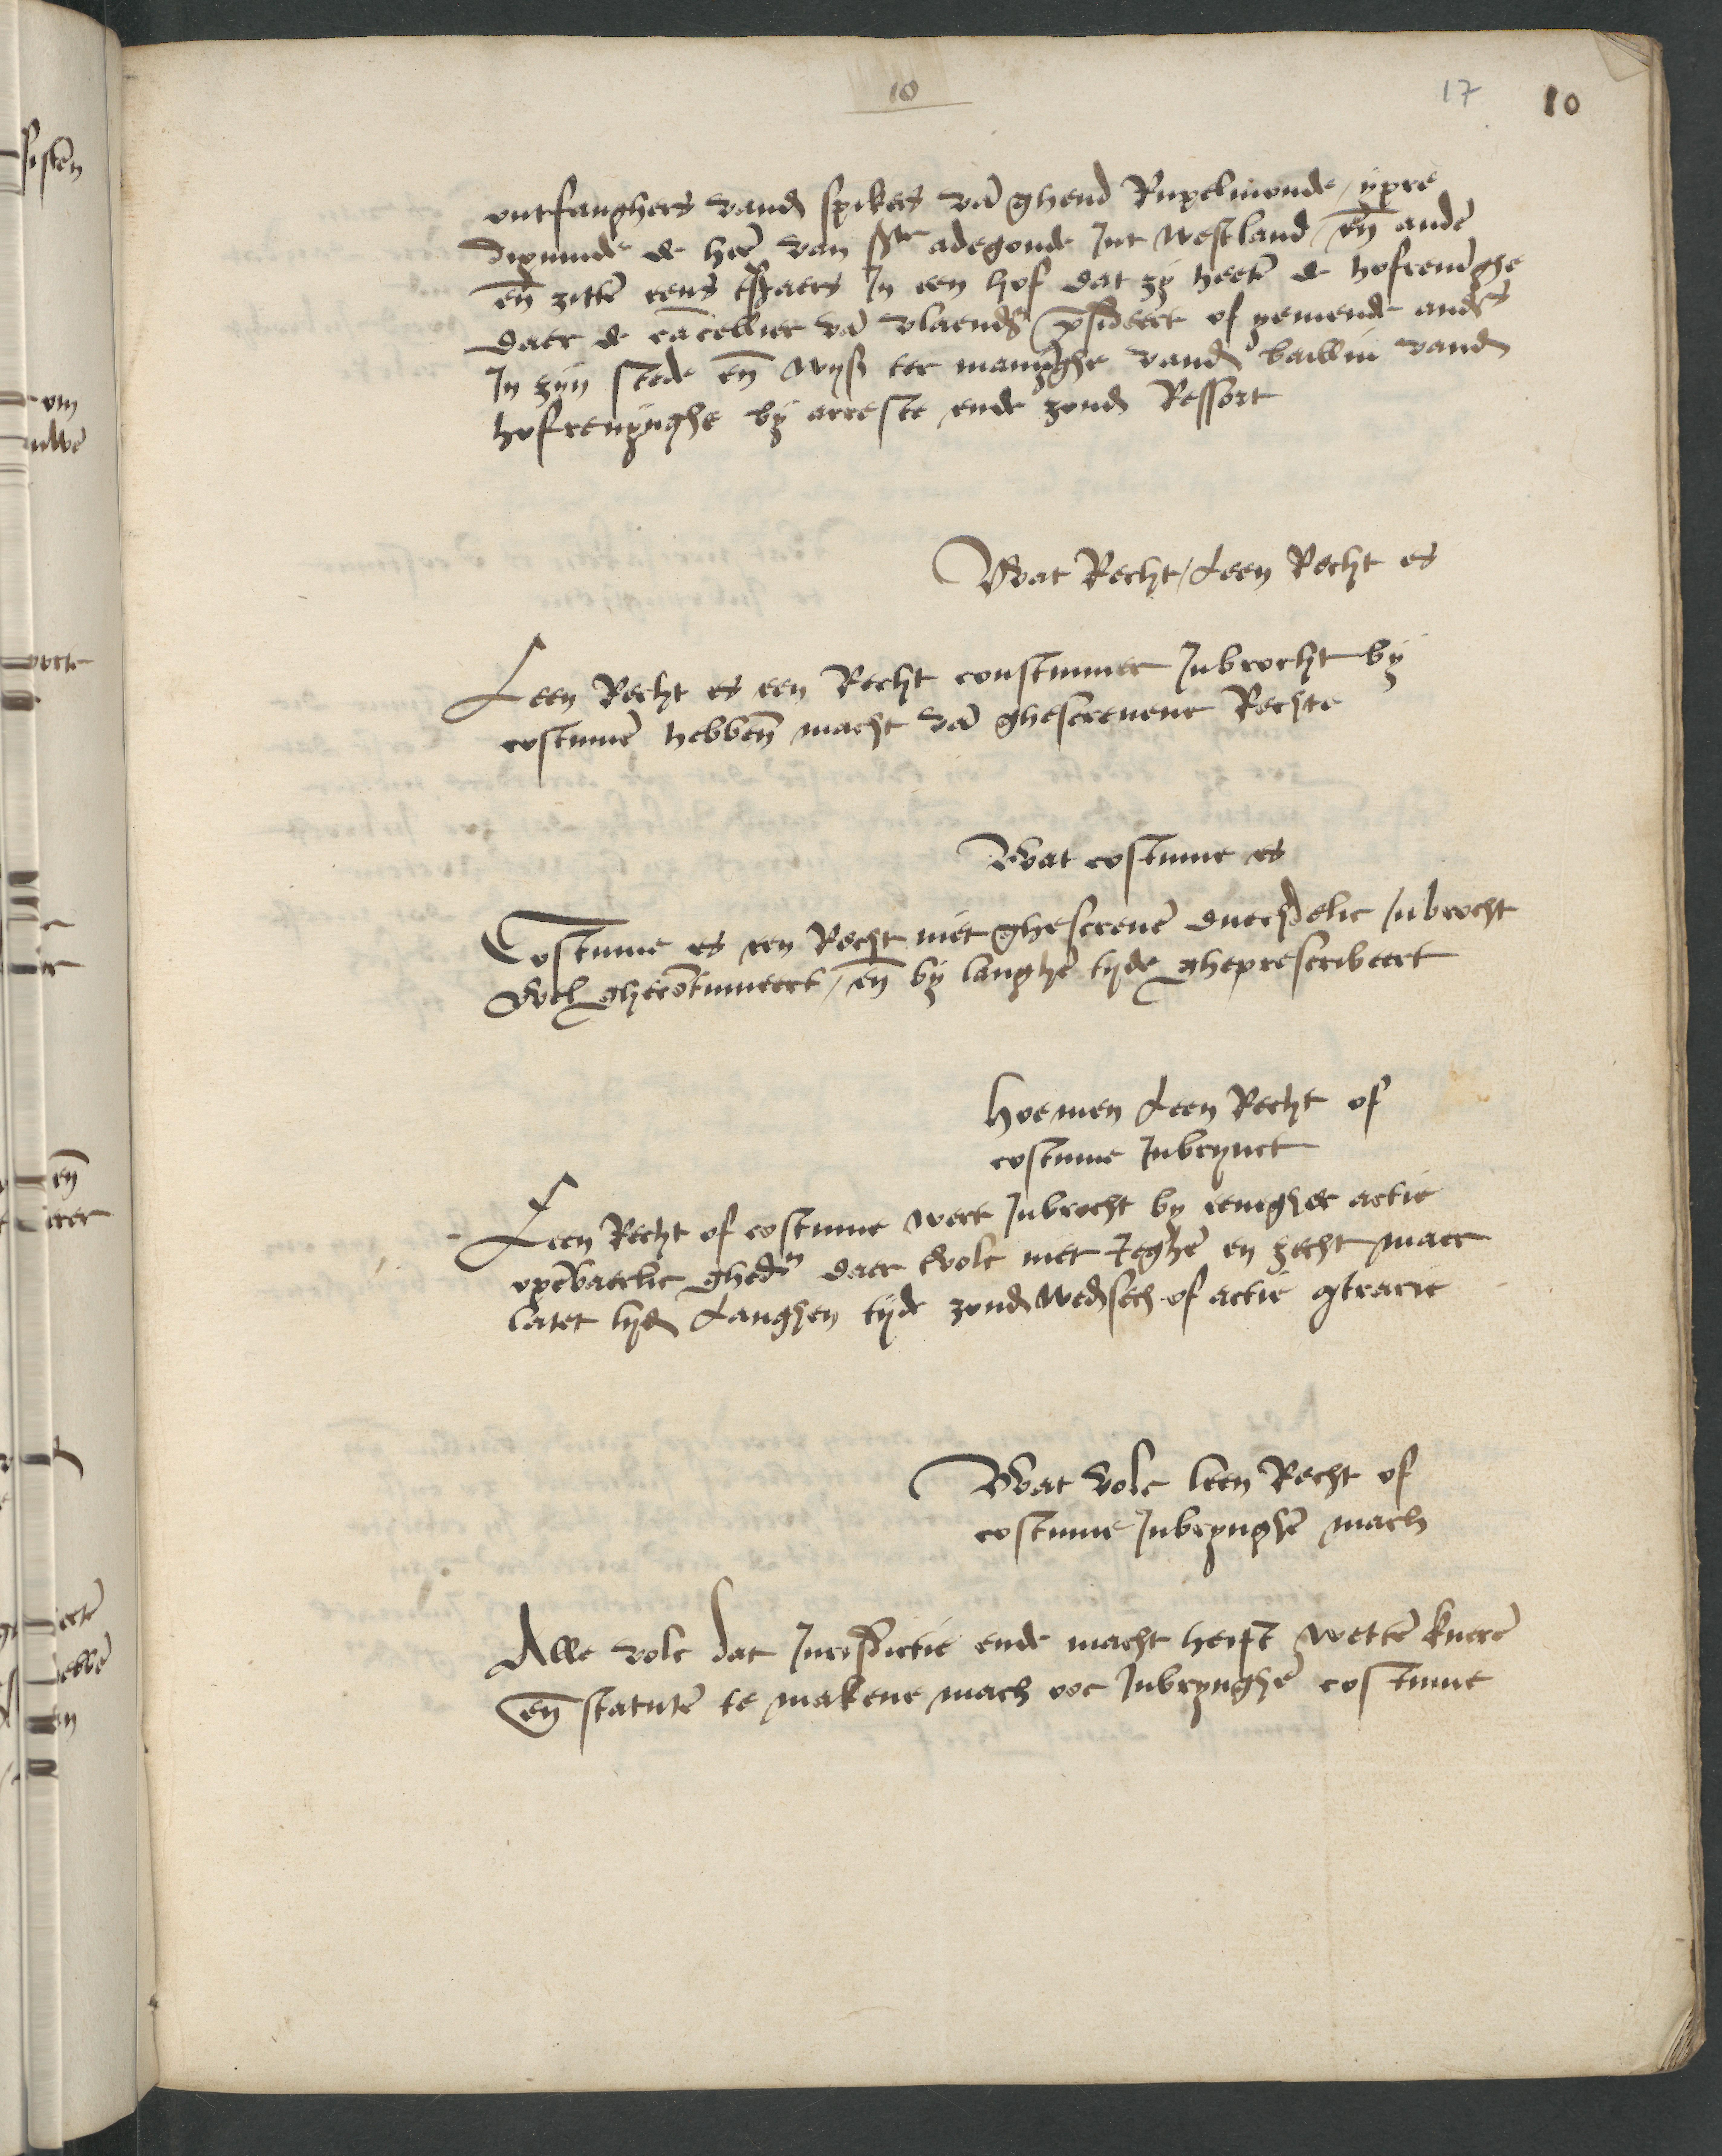 10 17 10
ontfanghers vand spikers vā ghend Rupelmonde / ypre
dixmude de heē van ste adegonde Int westland / eñ andē
eñ zittē eens tsjaers In een hof dat zy heetē de hofrenīghe
daer de cācellier vā vlaendr presideert of yemende anders
In zijn stede eñ wyst ter manīghe vand bailliu vand
hofrenynghe by arreste ende zond Ressort
Wat Recht / Leen Recht es
Leen Recht es een Recht coustumier Inbrocht by
costumē hebbeñ macht vā ghescreuene Rechte
Wat costume es
Costume es een Recht niet ghescreuē duechdelic Inbrocht
Wel ghecōtinueert / eñ by langhē tyde gheprescribeert
hoemen Leen Recht of
costume Inbrynct
Leen Recht of costume wert Inbrocht by eenigher actie
opēbaerlic ghedn daer tvolc niet Jeghē en zecht maer
latet lyd Langhen tijde zond wedsech of actie contrarie
Wat volc leen Recht of
costume Inbrynghē mach
Alle volc dat Jurisdictie ende macht heift wettē kuerē
eñ statutē te makene mach ooc Inbrynghē costume